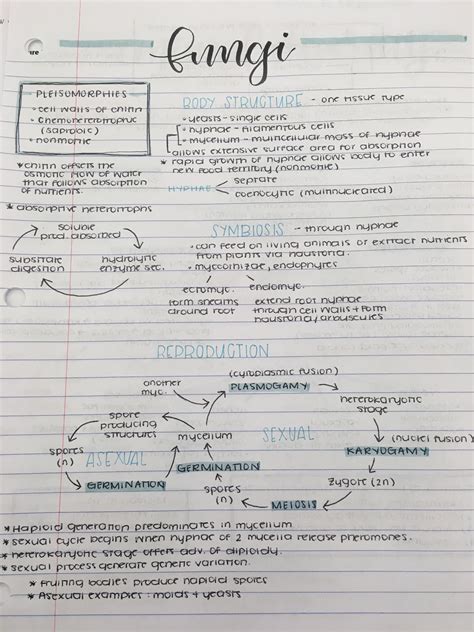 fungi
PLEISOMORPHIES
• cell walls of chitin
• chemoheterotrophic
(saprobic)
• nonmotile
BODY STRUCTURE - one tissue type
• yeasts - single cells
• hyphae - filamentous cells
- mycelium - multicellular mass of hyphae
allows extensive surface area for absorption
* rapid growth of hyphae allows body to enter
new food territory (nonmotile)
HYPHAE
septate
coenocytic (multinucleated)
* chitin offsets the
osmotic flow of water
that follows absorption
of nutrients.
* absorptive heterotrophs
soluble
prod. absorbed
substrate
digestion
hydrolytic
enzyme sec.
SYMBIOSIS - through hyphae
• can feed on living animals or extract nutrients
from plants via haustoria.
• mycorrhizae, endophytes
ectomyc.
endomyc.
form sheaths
around root
extend root hyphae
through cell walls + form
haustoria/arbuscules
REPRODUCTION
(cytoplasmic fusion)
another
myc.
PLASMOGAMY
heterokaryotic
stage
spore
producing
structures
mycelium
SEXUAL
(nuclei fusion)
KARYOGAMY
spores
(n)
ASEXUAL
GERMINATION
GERMINATION
zygote (2n)
spores
(n)
MEIOSIS
* Haploid generation predominates in mycelium
* sexual cycle begins when hyphae of 2 mycelia release pheromones.
* heterokaryotic stage offers adv. of diploidy.
* sexual process generate genetic variation.
* fruiting bodies produce haploid spores
* Asexual examples: molds + yeasts